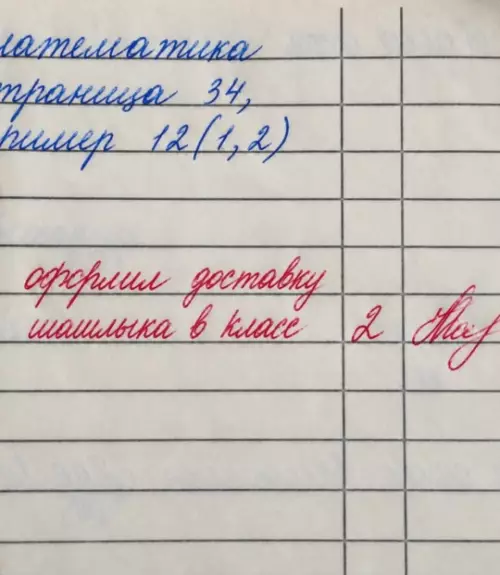 математика
траница 34,
ример 12(1,2)
оформил доставку
шашлыка в класс 2